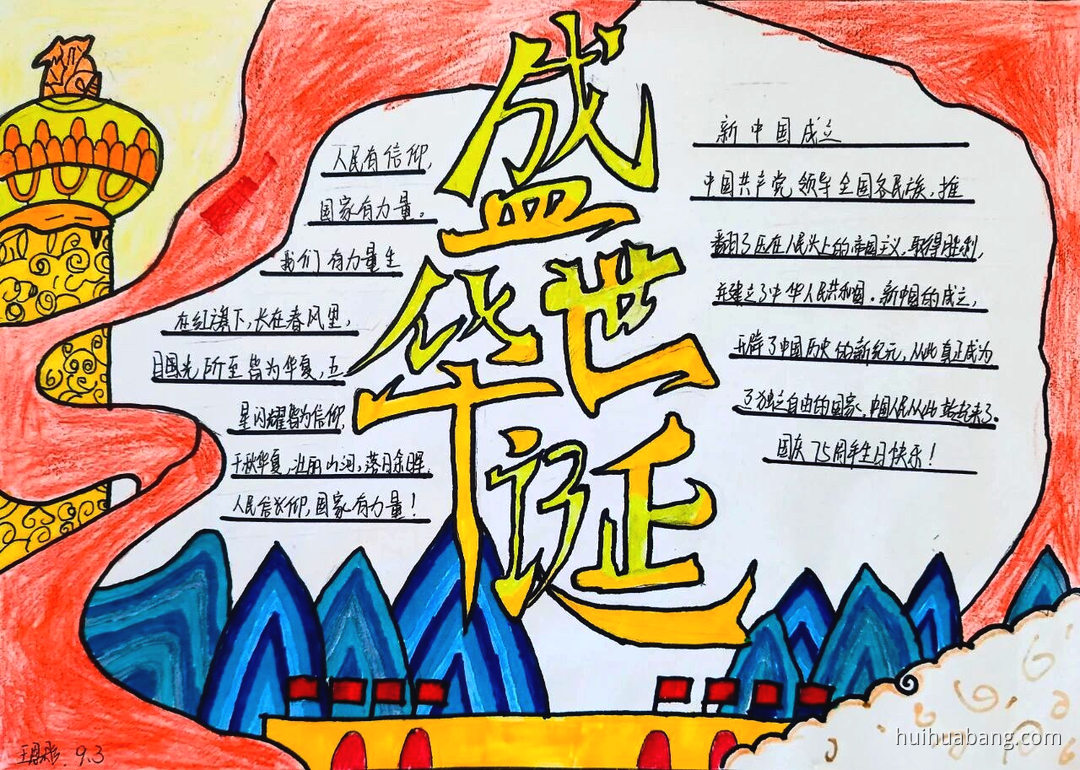 盛世
华诞
人民有信仰,
国家有力量。
我们有力量生
在红旗下,长在春风里,
目国光所至皆为华夏,五
星闪耀皆为信仰,
千秋华夏,壮丽山河,落日余晖,
人民信仰,国家有力量!
新中国成立
中国共产党领导全国各民族,推
翻了压在人民头上的帝国主义,取得胜利,
并建立了中华人民共和国。新中国的成立,
开辟了中国历史的新纪元,从此真正成为
了独立自由的国家,中国人民从此站起来了。
国庆75周年生日快乐!
9.3
huihuabang.com